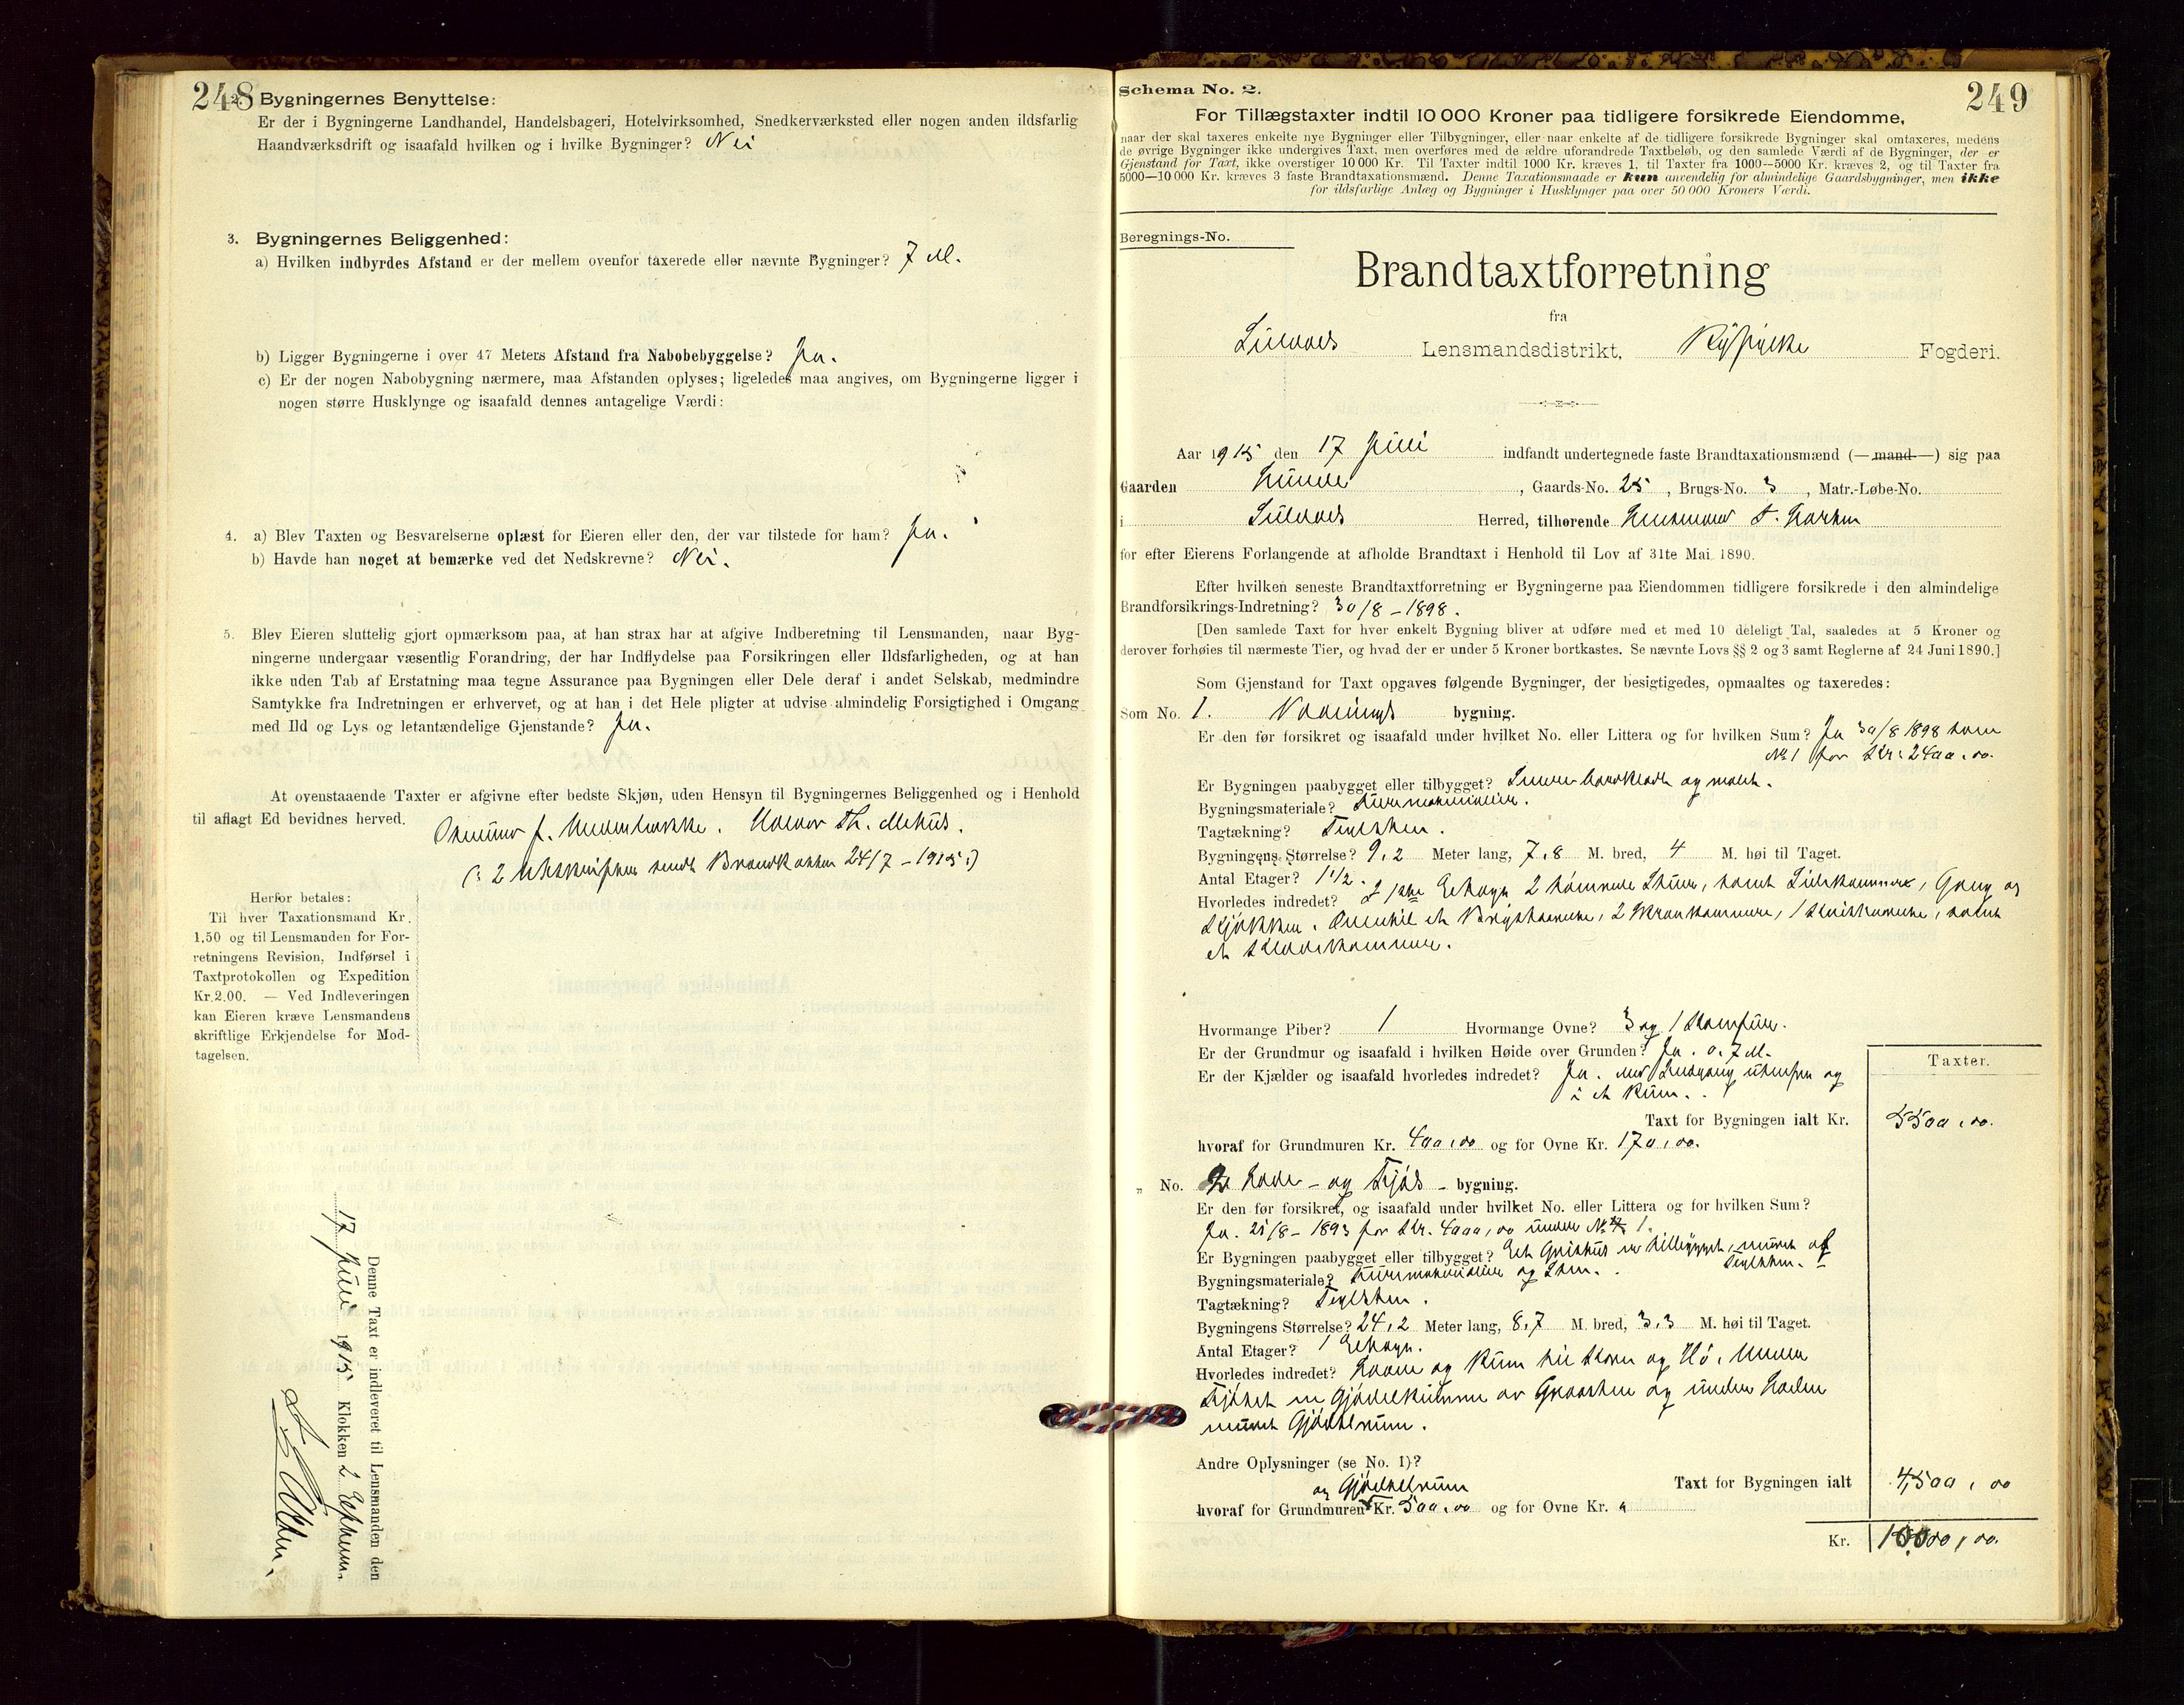 248
2. Bygningernes Benyttelse:
Er der i Bygningerne Landhandel, Handelsbageri, Hotelvirksomhed, Snedkerværksted eller nogen anden ildsfarlig
Haandværksdrift og isaafald hvilken og i hvilke Bygninger? Nei
3. Bygningernes Beliggenhed:
a) Hvilken indbyrdes Afstand er der mellem ovenfor taxerede eller nævnte Bygninger? 7 M.
b) Ligger Bygningerne i over 47 Meters Afstand fra Nabobebyggelse? Ja.
c) Er der nogen Nabobygning nærmere, maa Afstanden oplyses; ligeledes maa angives, om Bygningerne ligger i
nogen større Husklynge og isaafald dennes antagelige Værdi:
4. a) Blev Taxten og Besvarelserne oplæst for Eieren eller den, der var tilstede for ham? Ja.
b) Havde han noget at bemærke ved det Nedskrevne? Nei.
5. Blev Eieren sluttelig gjort opmærksom paa, at han strax har at afgive Indberetning til Lensmanden, naar Byg-
ningerne undergaar væsentlig Forandring, der har Indflydelse paa Forsikringen eller Ildsfarligheden, og at han
ikke uden Tab af Erstatning maa tegne Assurance paa Bygningen eller Dele deraf i andet Selskab, medmindre
Samtykke fra Indretningen er erhvervet, og at han i det Hele pligter at udvise almindelig Forsigtighed i Omgang
med Ild og Lys og letantændelige Gjenstande? Ja.
At ovenstaaende Taxter er afgivne efter bedste Skjøn, uden Hensyn til Bygningernes Beliggenhed og i Henhold
til aflagt Ed bevidnes herved. J. Th. Mehus.
(: 2 Udskrifter sendt Brandkassen 24/7 - 1915 :)
Herfor betales:
Til hver Taxationsmand Kr.
1.50 og til Lensmanden for For-
retningens Revision, Indførsel i
Taxtprotokollen og Expedition
Kr. 2.00. — Ved Indleveringen
kan Eieren kræve Lensmandens
skriftlige Erkjendelse for Mod-
tagelsen.
Denne Taxt er indleveret til Lensmanden den
17 Juni 1915 Klokken 2 Efterm.
249
Schema No. 2.
For Tillægstaxter indtil 10 000 Kroner paa tidligere forsikrede Eiendomme,
naar der skal taxeres enkelte nye Bygninger eller Tilbygninger, eller naar enkelte af de tidligere forsikrede Bygninger skal omtaxeres, medens
de øvrige Bygninger ikke undergives Taxt, men overføres med de ældre uforandrede Taxtbeløb, og den samlede Værdi af de Bygninger, der er
Gjenstand for Taxt, ikke overstiger 10 000 Kr. Til Taxter indtil 1000 Kr. kræves 1, til Taxter fra 1000—5000 Kr. kræves 2, og til Taxter fra
5000—10 000 Kr. kræves 3 faste Brandtaxationsmænd. Denne Taxationsmaade er kun anvendelig for almindelige Gaardsbygninger, men ikke
for ildsfarlige Anlæg og Bygninger i Husklynger paa over 50 000 Kroners Værdi.
Beregnings-No.
Brandtaxtforretning
fra
Lensmandsdistrikt, Ryfylke Fogderi.
Aar 1915 den 17 Juni indfandt undertegnede faste Brandtaxationsmænd (— mand —) sig paa
Gaarden , Gaards-No. 25, Brugs-No. 3, Matr.-Løbe-No.
i Herred, tilhørende
for efter Eierens Forlangende at afholde Brandtaxt i Henhold til Lov af 31te Mai 1890.
Efter hvilken seneste Brandtaxtforretning er Bygningerne paa Eiendommen tidligere forsikrede i den almindelige
Brandforsikrings-Indretning? 30/8 - 1898.
[Den samlede Taxt for hver enkelt Bygning bliver at udføre med et med 10 deleligt Tal, saaledes at 5 Kroner og
derover forhøies til nærmeste Tier, og hvad der er under 5 Kroner bortkastes. Se nævnte Lovs §§ 2 og 3 samt Reglerne af 24 Juni 1890.]
Som Gjenstand for Taxt opgaves følgende Bygninger, der besigtigedes, opmaaltes og taxeredes:
Som No. 1. Vaanings bygning.
Er den før forsikret og isaafald under hvilket No. eller Littera og for hvilken Sum? Ja 30/8 1898 som
No 1 for Kr: 2400,00.
Er Bygningen paabygget eller tilbygget? bordklædt og malet.
Bygningsmateriale? Tømmermaterialer.
Tagtækning? Teglsten.
Bygningens Størrelse? 9,2 Meter lang, 7,8 M. bred, 4 M. høi til Taget.
Antal Etager? 1 1/2.
Hvorledes indredet? I 1ste Etage 2 tømrede Stuer, samt Sidekammer, Gang og
Kjøkken. Ovenpaa et , 2 , 1 , samt
et Klædekammer.
Hvormange Piber? 1 Hvormange Ovne? 3 og 1 Komfur.
Er der Grundmur og isaafald i hvilken Høide over Grunden? Ja. 0,7 M.
Er der Kjælder og isaafald hvorledes indredet? Ja. med Indgang utenfra og
i et Rum.
Taxter.
Taxt for Bygningen ialt Kr. 5500,00.
hvoraf for Grundmuren Kr. 400,00 og for Ovne Kr. 170,00.
„ No. 2 Lade- og Fjøs- bygning.
Er den før forsikret, og isaafald under hvilket No. eller Littera og for hvilken Sum?
Ja. 25/8 - 1893 for Kr. 4000,00 under No 1.
Er Bygningen paabygget eller tilbygget? Et Grishus er tilbygget, muret af
Teglsten.
Bygningsmateriale? Tømmermaterialer og Sten.
Tagtækning? Teglsten.
Bygningens Størrelse? 24,2 Meter lang, 8,7 M. bred, 3,3 M. høi til Taget.
Antal Etager? 1 Etage.
Hvorledes indredet? Laave og Rum til Korn og Hø. Under
Fjøset er Gjødselkum av Graasten og under Laden
muret Gjødselrum.
Andre Oplysninger (se No. 1)?
og Gjødselrum
Taxt for Bygningen ialt 4500,00
hvoraf for Grundmuren Kr. 500,00 og for Ovne Kr. "
Kr. 10000,00.